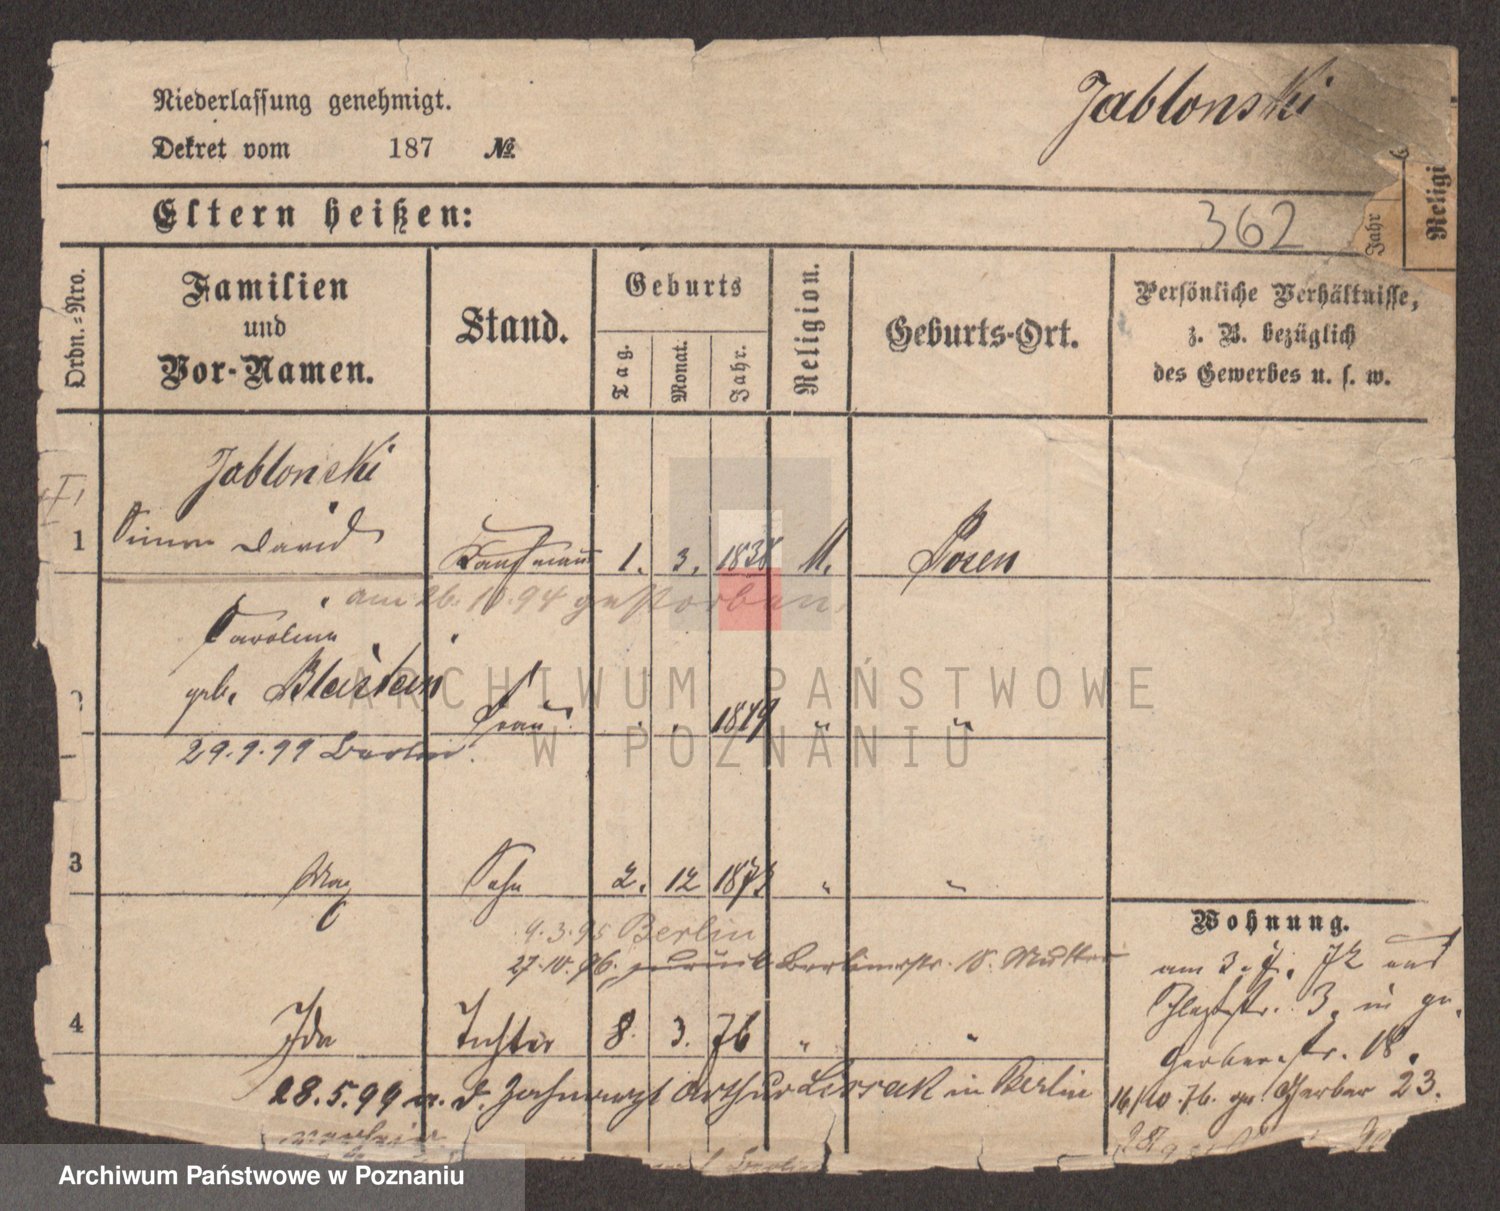 Niederlassung genehmigt.
Dekret vom 187 №
Jablonski
Eltern heißen:
362
Jahr
Religi
Ordn.-Nro.
Familien
und
Vor-Namen.
Stand.
Geburts
Tag.
Monat.
Jahr.
Religion.
Geburts-Ort.
Persönliche Verhältnisse,
z. B. bezüglich
des Gewerbes u. s. w.
Jablonski
1 Simon David Kaufmann 1. 3. 1838 M. Posen
am 26. 10. 94 gestorben
Caroline
geb. Bleistein Frau 1849 " "
29.9.99 Berlin.
3 Max Sohn 2. 12 1873 " "
9.3.95 Berlin
27.10.96. zurück Berlinerstr. 10. Mutter
4 Ida Tochter 8. 3. 76 " "
28.5.99 m. d. Zahnarzt Arthur Lissack in Berlin
Wohnung.
am 3. 4. 72 aus
3. in gr.
Gerberstr. 18.
16/10.76. gr Gerber 23.
ARCHIWUM PAŃSTWOWE
W POZNANIU
Archiwum Państwowe w Poznaniu